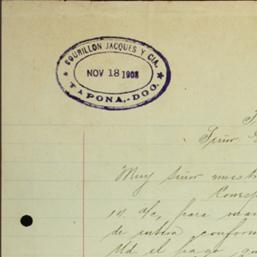 BOURILLON JACQUES Y CIA.
NOV 18 1908
TAPONA.-DGO.
Señor
Muy Señor nuestr
Corresp
14 d/c, para man
de entera conform
Ud el pago qu